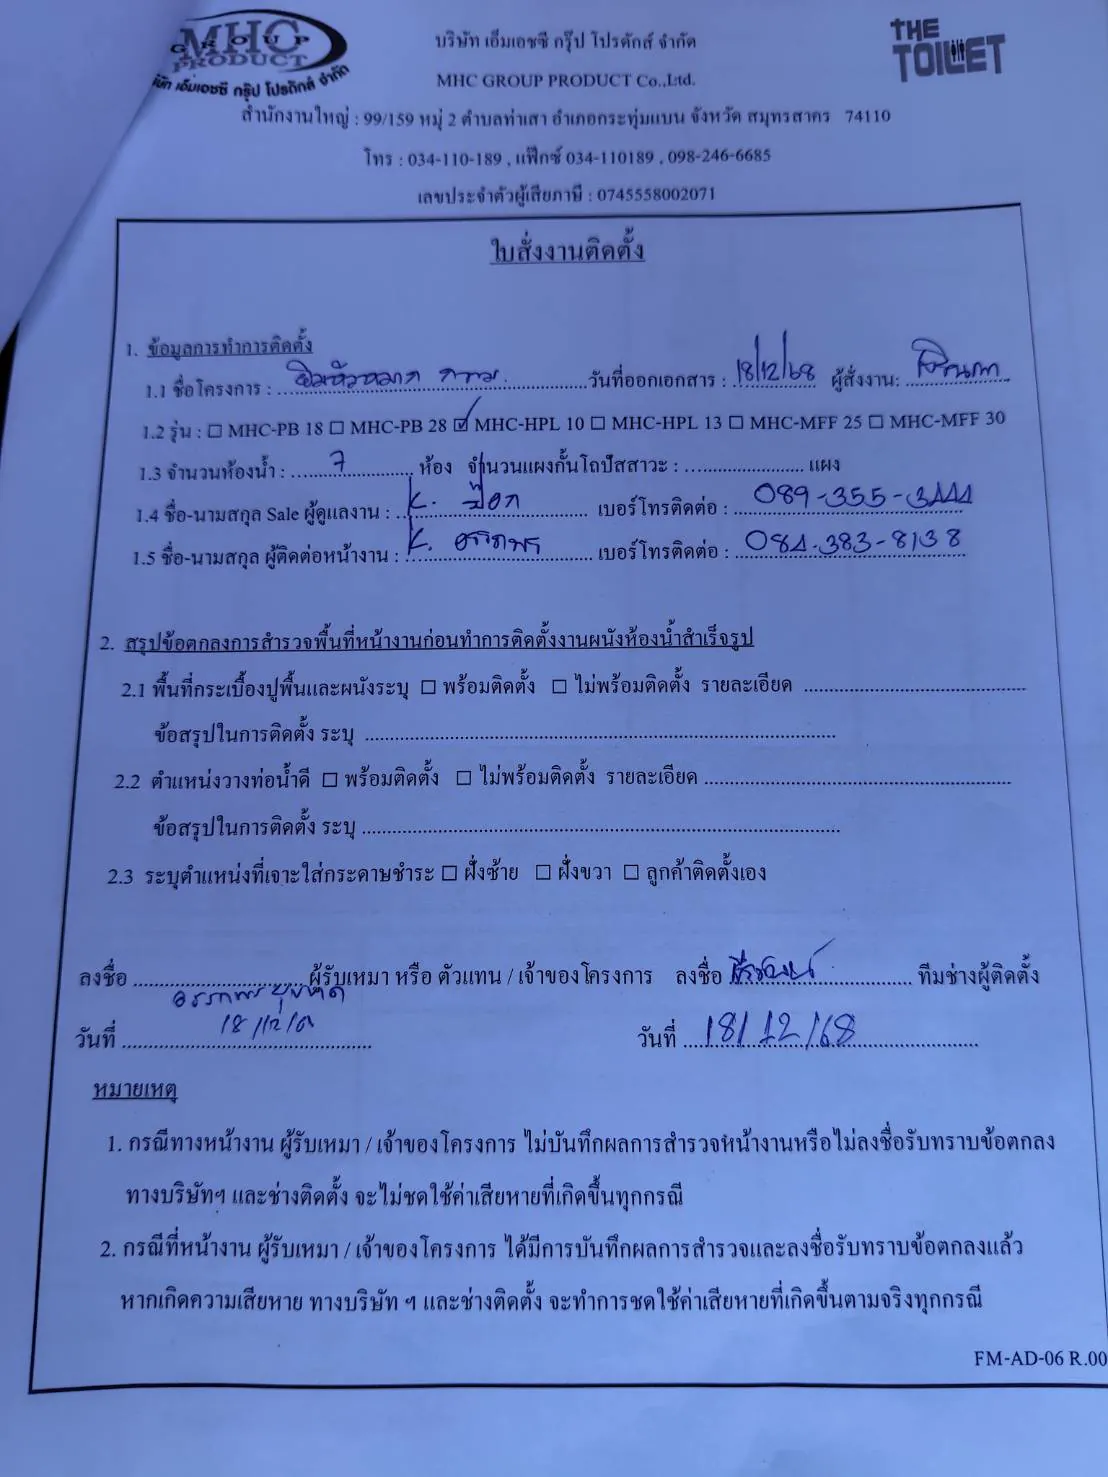 MHC
GROUP
PRODUCT
บริษัท เอ็มเอชซี กรุ๊ป โปรดักส์ จำกัด
THE
TOILET
บริษัท เอ็มเอชซี กรุ๊ป โปรดักส์ จำกัด
MHC GROUP PRODUCT Co.,Ltd.
สำนักงานใหญ่ : 99/159 หมู่ 2 ตำบลท่าเสา อำเภอกระทุ่มแบน จังหวัด สมุทรสาคร 74110
โทร : 034-110-189 , แฟ๊กซ์ 034-110189 , 098-246-6685
เลขประจำตัวผู้เสียภาษี : 0745558002071
ใบสั่งงานติดตั้ง
1. ข้อมูลการทำการติดตั้ง
1.1 ชื่อโครงการ : วันที่ออกเอกสาร : 18/12/68 ผู้สั่งงาน:
1.2 รุ่น : ☐ MHC-PB 18 ☐ MHC-PB 28 ☑ MHC-HPL 10 ☐ MHC-HPL 13 ☐ MHC-MFF 25 ☐ MHC-MFF 30
1.3 จำนวนห้องน้ำ : 7 ห้อง จำนวนแผงกั้นโถปัสสาวะ : แผง
1.4 ชื่อ-นามสกุล Sale ผู้ดูแลงาน : K. ป๊อก เบอร์โทรติดต่อ : 089-355-3444
1.5 ชื่อ-นามสกุล ผู้ติดต่อหน้างาน : K. อรรถพร เบอร์โทรติดต่อ : 084-383-8138
2. สรุปข้อตกลงการสำรวจพื้นที่หน้างานก่อนทำการติดตั้งงานผนังห้องน้ำสำเร็จรูป
2.1 พื้นที่กระเบื้องปูพื้นและผนังระบุ ☐ พร้อมติดตั้ง ☐ ไม่พร้อมติดตั้ง รายละเอียด
ข้อสรุปในการติดตั้ง ระบุ
2.2 ตำแหน่งวางท่อน้ำดี ☐ พร้อมติดตั้ง ☐ ไม่พร้อมติดตั้ง รายละเอียด
ข้อสรุปในการติดตั้ง ระบุ
2.3 ระบุตำแหน่งที่เจาะใส่กระดาษชำระ ☐ ฝั่งซ้าย ☐ ฝั่งขวา ☐ ลูกค้าติดตั้งเอง
ลงชื่อ ผู้รับเหมา หรือ ตัวแทน / เจ้าของโครงการ ลงชื่อ ทีมช่างผู้ติดตั้ง
อรรถพร
วันที่ 18/12/68 วันที่ 18/12/68
หมายเหตุ
1. กรณีทางหน้างาน ผู้รับเหมา / เจ้าของโครงการ ไม่บันทึกผลการสำรวจหน้างานหรือไม่ลงชื่อรับทราบข้อตกลง
ทางบริษัทฯ และช่างติดตั้ง จะไม่ชดใช้ค่าเสียหายที่เกิดขึ้นทุกกรณี
2. กรณีที่หน้างาน ผู้รับเหมา / เจ้าของโครงการ ได้มีการบันทึกผลการสำรวจและลงชื่อรับทราบข้อตกลงแล้ว
หากเกิดความเสียหาย ทางบริษัท ฯ และช่างติดตั้ง จะทำการชดใช้ค่าเสียหายที่เกิดขึ้นตามจริงทุกกรณี
FM-AD-06 R.00